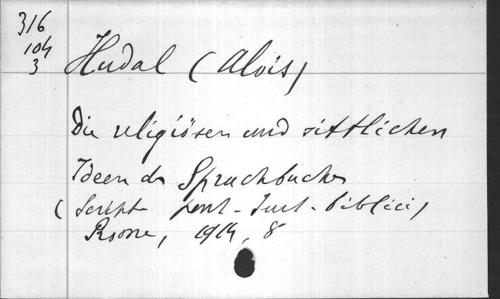 316
104
3
Hudal (Alois)
Die religiösen und sittlichen
Ideen des Spruchbuches
(Script. pont. Inst. biblici)
Rome, 1914, 8